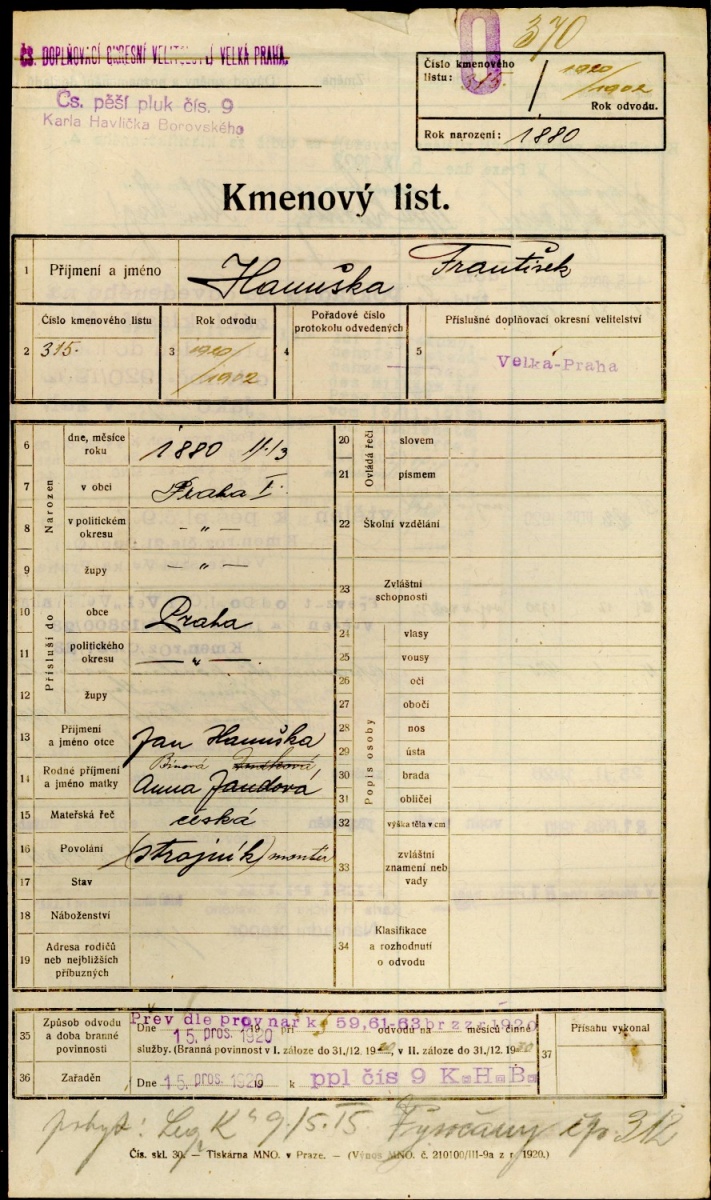 370
ČS. DOPLŇOVACÍ OKRESNÍ VELITELSTVÍ VELKÁ PRAHA.
Čs. pěší pluk čís. 9
Karla Havlíčka Borovského
Číslo kmenového listu: 315. / 1920/1902
Rok odvodu.
Rok narození: 1880
Kmenový list.
1 Příjmení a jméno Hanuška František
Číslo kmenového listu Rok odvodu Pořadové číslo protokolu odvedených Příslušné doplňovací okresní velitelství
2 315. 3 1920/1902 4 5 Velká-Praha
Narozen
6 dne, měsíce roku 1880 11/3
7 v obci Praha I.
8 v politickém okresu — " —
9 župy — " —
Přísluší do
10 obce Praha
11 politického okresu — " —
12 župy
13 Příjmení a jméno otce Jan Hanuška
14 Rodné příjmení a jméno matky Anna Jandová
15 Mateřská řeč česká
16 Povolání (strojník) montér
17 Stav
18 Náboženství
19 Adresa rodičů neb nejbližších příbuzných
Ovládá řeči
20 slovem
21 písmem
22 Školní vzdělání
23 Zvláštní schopnosti
Popis osoby
24 vlasy
25 vousy
26 oči
27 obočí
28 nos
29 ústa
30 brada
31 obličej
32 výška těla v cm
33 zvláštní znamení neb vady
34 Klasifikace a rozhodnutí o odvodu
Přev dle prov nař k § 59,61-63 br z z r 1920
35 Způsob odvodu a doba branné povinnosti Dne 15. pros. 1920 19 při odvodu na měsíců činné
služby. (Branná povinnost v I. záloze do 31./12. 1920, v II. záloze do 31./12. 1930
36 Zařaděn Dne 15. pros. 1920 19 k ppl čís 9 K.H.B.
37 Přísahu vykonal
pobyt: Vysočany čp. 312
Čís. skl. 30. — Tiskárna MNO. v Praze. — (Výnos MNO. č. 210100/III-9a z r. 1920.)